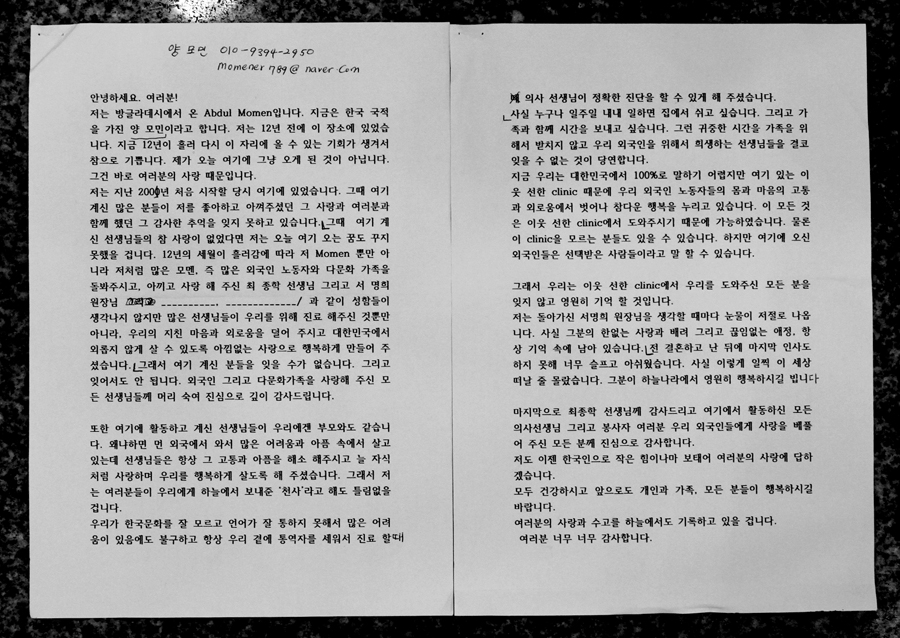 양 모민 010-9394-2950
momener789@naver.com
안녕하세요. 여러분!
저는 방글라데시에서 온 Abdul Momen입니다. 지금은 한국 국적
을 가진 양 모민이라고 합니다. 저는 12년 전에 이 장소에 있었습
니다. 지금 12년이 흘러 다시 이 자리에 올 수 있는 기회가 생겨서
참으로 기쁩니다. 제가 오늘 여기에 그냥 오게 된 것이 아닙니다.
그건 바로 여러분의 사랑 때문입니다.
저는 지난 2000년 처음 시작할 당시 여기에 있었습니다. 그때 여기
계신 많은 분들이 저를 좋아하고 아껴주셨던 그 사랑과 여러분과
함께 했던 그 감사한 추억을 잊지 못하고 있습니다. 그때 여기 계
신 선생님들의 참 사랑이 없었다면 저는 오늘 여기 오는 꿈도 꾸지
못했을 겁니다. 12년의 세월이 흘러감에 따라 저 Momen 뿐만 아
니라 저처럼 많은 모멘, 즉 많은 외국인 노동자와 다문화 가족을
돌봐주시고, 아끼고 사랑 해 주신 최 종학 선생님 그리고 서 명희
원장님 그리고 __________, _____________/ 과 같이 성함들이
생각나지 않지만 많은 선생님들이 우리를 위해 진료 해주신 것뿐만
아니라, 우리의 지친 마음과 외로움을 덜어 주시고 대한민국에서
외롭지 않게 살 수 있도록 아낌없는 사랑으로 행복하게 만들어 주
셨습니다. 그래서 여기 계신 분들을 잊을 수가 없습니다. 그리고
잊어서도 안 됩니다. 외국인 그리고 다문화가족을 사랑해 주신 모
든 선생님들께 머리 숙여 진심으로 깊이 감사드립니다.
또한 여기에 활동하고 계신 선생님들이 우리에겐 부모와도 같습니
다. 왜냐하면 먼 외국에서 와서 많은 어려움과 아픔 속에서 살고
있는데 선생님들은 항상 그 고통과 아픔을 해소 해주시고 늘 자식
처럼 사랑하며 우리를 행복하게 살도록 해 주셨습니다. 그래서 저
는 여러분들이 우리에게 하늘에서 보내준 '천사'라고 해도 틀림없을
겁니다.
우리가 한국문화를 잘 모르고 언어가 잘 통하지 못해서 많은 어려
움이 있음에도 불구하고 항상 우리 곁에 통역자를 세워서 진료 할때
의사 선생님이 정확한 진단을 할 수 있게 해 주셨습니다.
사실 누구나 일주일 내내 일하면 집에서 쉬고 싶습니다. 그리고 가
족과 함께 시간을 보내고 싶습니다. 그런 귀중한 시간을 가족을 위
해서 받치지 않고 우리 외국인을 위해서 희생하는 선생님들을 결코
잊을 수 없는 것이 당연합니다.
지금 우리는 대한민국에서 100%로 말하기 어렵지만 여기 있는 이
웃 선한 clinic 때문에 우리 외국인 노동자들의 몸과 마음의 고통
과 외로움에서 벗어나 참다운 행복을 누리고 있습니다. 이 모든 것
은 이웃 선한 clinic에서 도와주시기 때문에 가능하였습니다. 물론
이 clinic을 모르는 분들도 있을 수 있습니다. 하지만 여기에 오신
외국인들은 선택받은 사람들이라고 말 할 수 있습니다.
그래서 우리는 이웃 선한 clinic에서 우리를 도와주신 모든 분을
잊지 않고 영원히 기억 할 것입니다.
저는 돌아가신 서명희 원장님을 생각할 때마다 눈물이 저절로 나옵
니다. 사실 그분의 한없는 사랑과 배려 그리고 끊임없는 애정, 항
상 기억 속에 남아 있습니다. 전 결혼하고 난 뒤에 마지막 인사도
하지 못해 너무 슬프고 아쉬웠습니다. 사실 이렇게 일찍 이 세상
떠날 줄 몰랐습니다. 그분이 하늘나라에서 영원히 행복하시길 빕니다
마지막으로 최종학 선생님께 감사드리고 여기에서 활동하신 모든
의사선생님 그리고 봉사자 여러분 우리 외국인들에게 사랑을 베풀
어 주신 모든 분께 진심으로 감사합니다.
저도 이젠 한국인으로 작은 힘이나마 보태어 여러분의 사랑에 답하
겠습니다.
모두 건강하시고 앞으로도 개인과 가족, 모든 분들이 행복하시길
바랍니다.
여러분의 사랑과 수고를 하늘에서도 기록하고 있을 겁니다.
여러분 너무 너무 감사합니다.